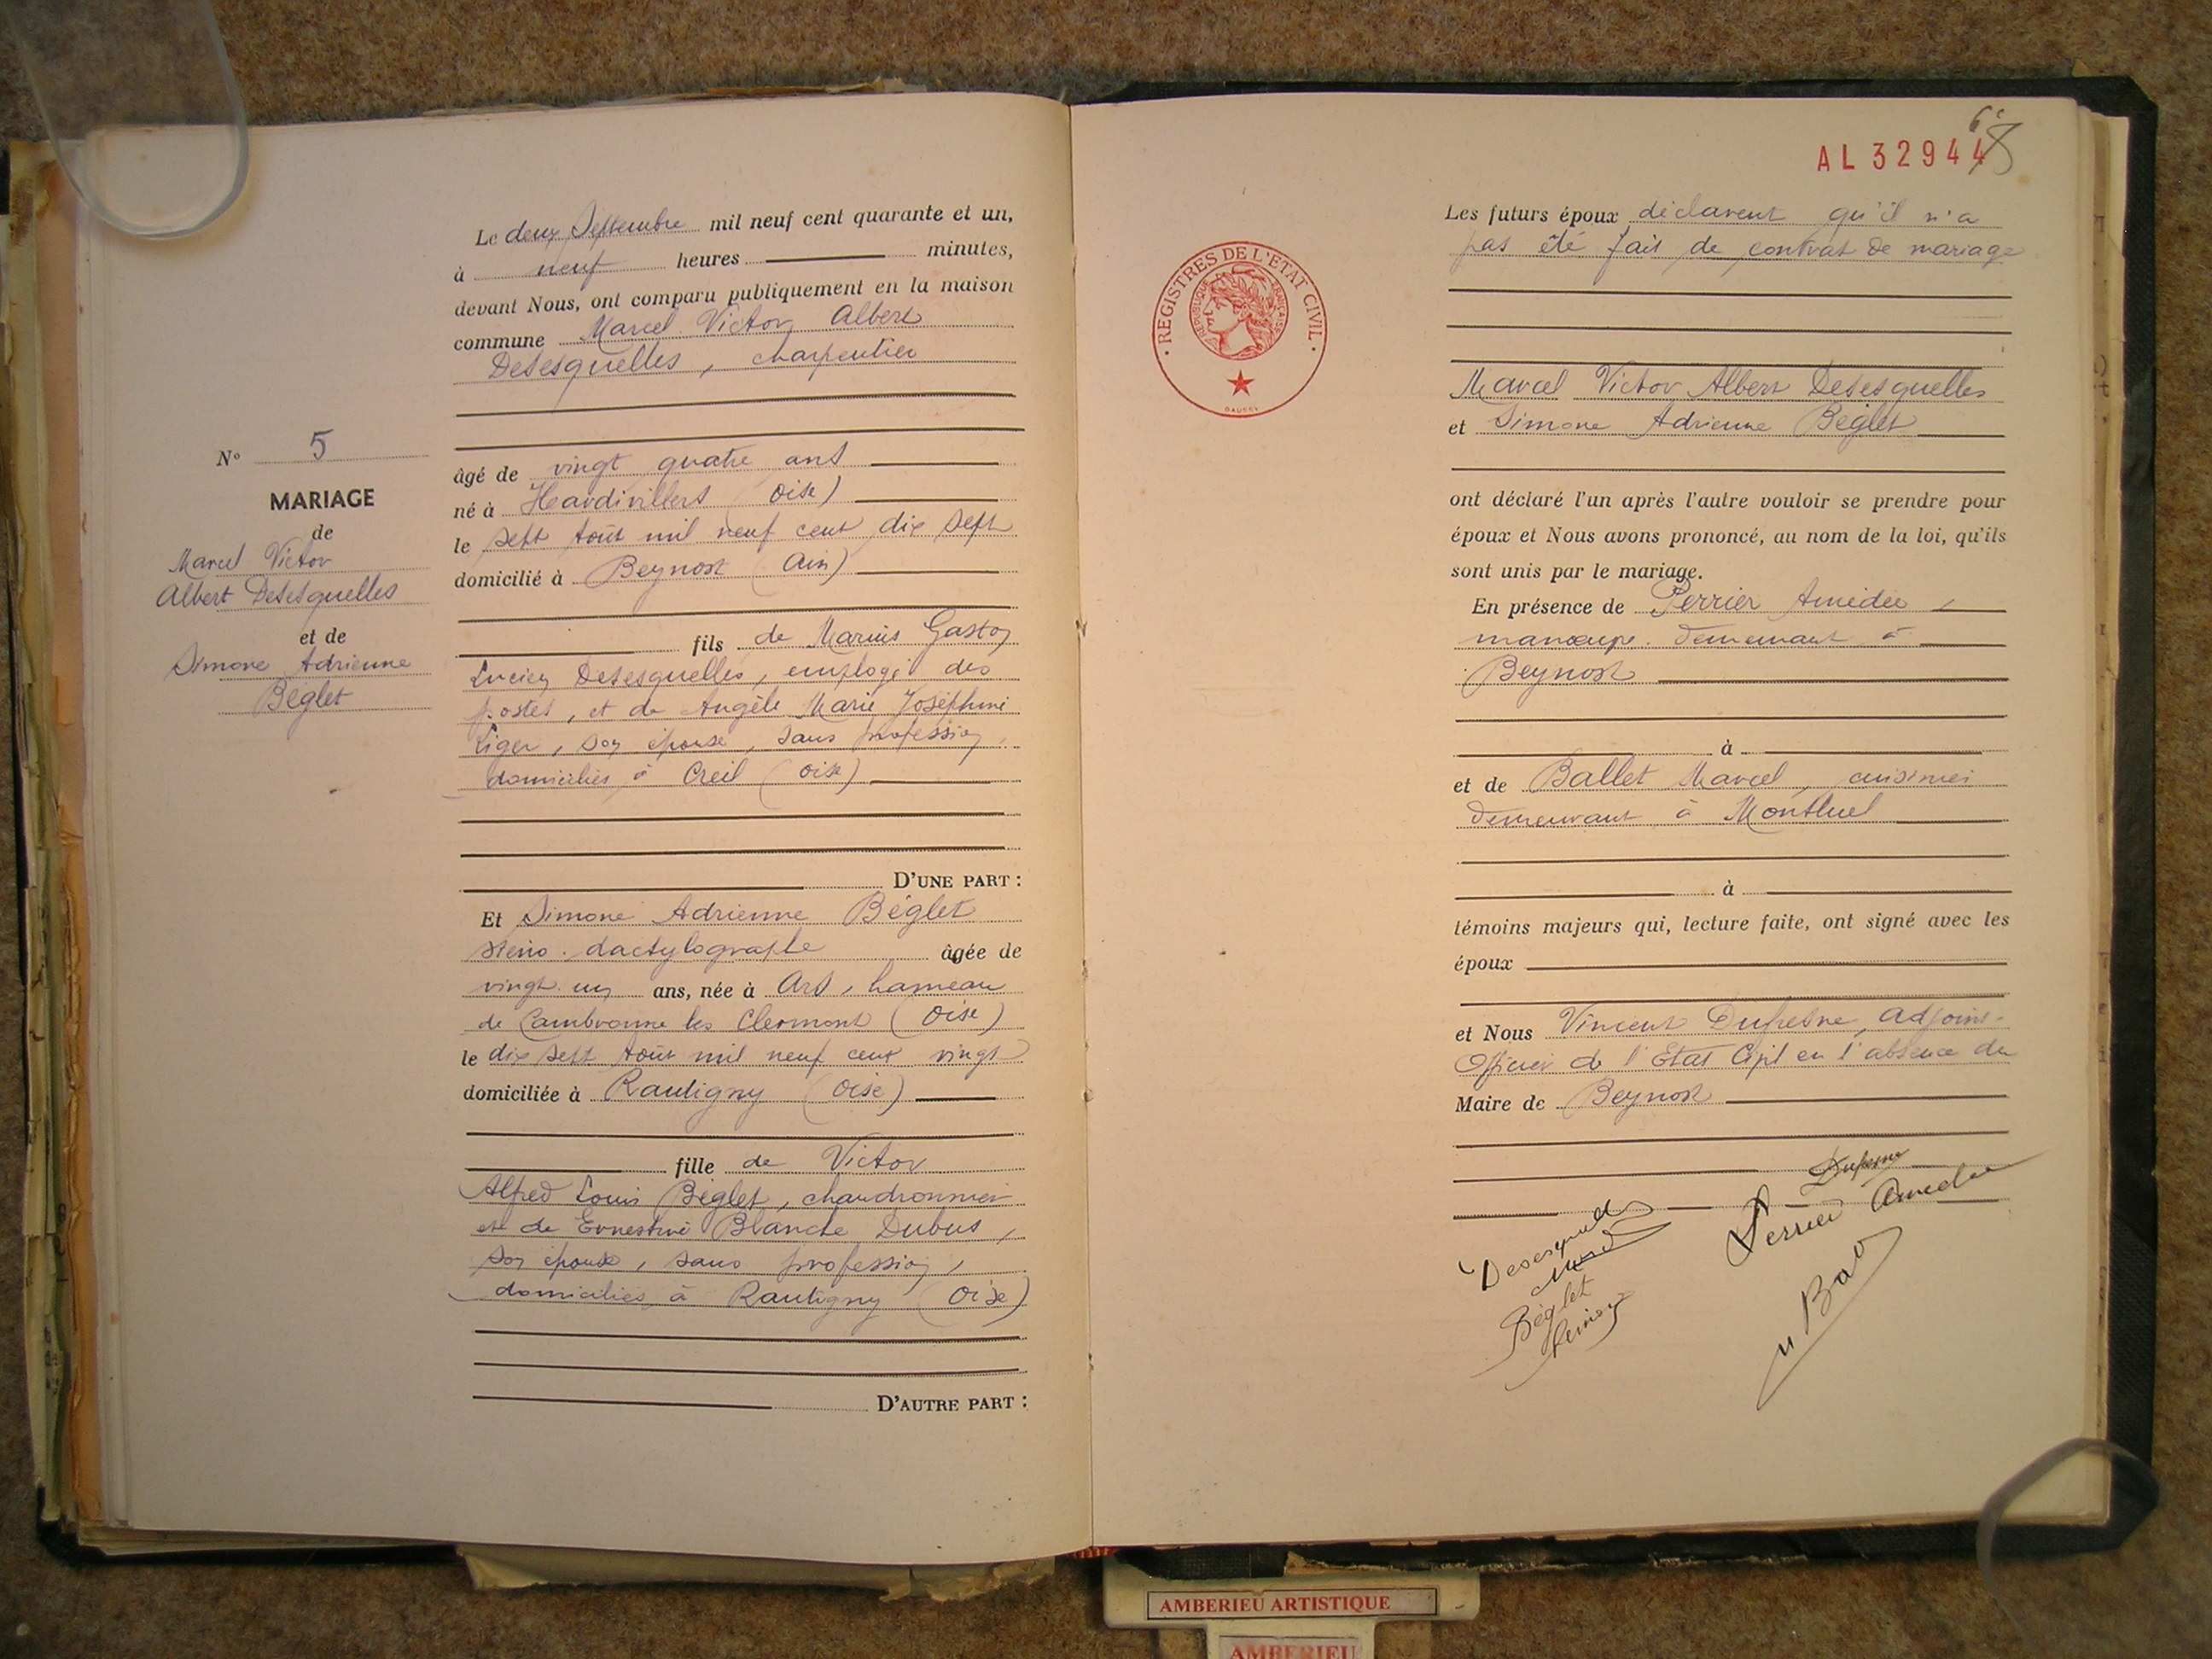 N° 5
MARIAGE
de
Marcel Victor
Albert Desesquelles
et de
Simone Adrienne
Béglet
Le deux Septembre mil neuf cent quarante et un,
à neuf heures minutes,
devant Nous, ont comparu publiquement en la maison
commune Marcel Victor Albert
Desesquelles, charpentier
âgé de vingt quatre ans
né à Hardivillers (Oise)
le sept Août mil neuf cent dix sept
domicilié à Beynost (Ain)
fils de Marius Gaston
Lucien Desesquelles, employé des
postes, et de Angèle Marie Joséphine
Liger, son épouse, sans profession,
domiciliés à Creil (Oise)
D'UNE PART :
Et Simone Adrienne Béglet
sténo-dactylographe âgée de
vingt un ans, née à Ars, hameau
de Cambronne les Clermont (Oise)
le dix sept Août mil neuf cent vingt
domiciliée à Rantigny (Oise)
fille de Victor
Alfred Louis Béglet, chaudronnier
et de Ernestine Blanche Dubus,
son épouse, sans profession,
domiciliés à Rantigny (Oise)
D'AUTRE PART :
AL 32944
REGISTRES DE L'ETAT CIVIL
REPUBLIQUE FRANÇAISE
Les futurs époux déclarent qu'il n'a
pas été fait de contrat de mariage
Marcel Victor Albert Desesquelles
et Simone Adrienne Béglet
ont déclaré l'un après l'autre vouloir se prendre pour
époux et Nous avons prononcé, au nom de la loi, qu'ils
sont unis par le mariage.
En présence de Perrier Amédée,
demeurant à
Beynost
à
et de Ballet Marcel, cuisinier
demeurant à Montluel
à
témoins majeurs qui, lecture faite, ont signé avec les
époux
et Nous Vincent Dufresne, adjoint
Officier de l'Etat Civil en l'absence du
Maire de Beynost
Dufresne
Perrier Amedee
Béglet
AMBERIEU ARTISTIQUE
AMBERIEU